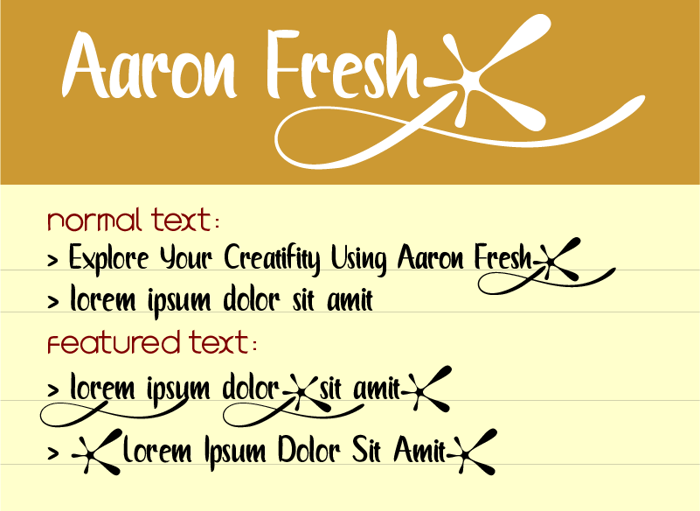 Aaron Fresh
normal text:
> Explore Your Creatifity Using Aaron Fresh
> lorem ipsum dolor sit amit
featured text:
> lorem ipsum dolor sit amit
> Lorem Ipsum Dolor Sit Amit